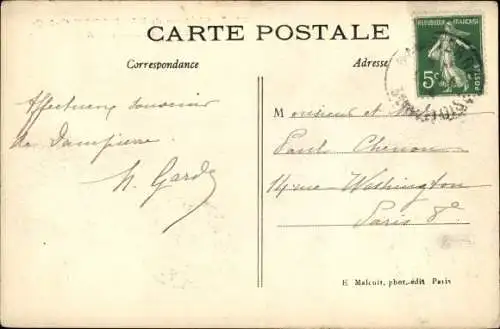 CARTE POSTALE
Correspondance
Adresse
REPUBLIQUE FRANÇAISE
5c
POSTES
Affectueux souvenir
de Dampierre
M
Monsieur et
Paul Chenon
14 rue Washington
Paris 8e
E. Malcuit, phot.-édit. Paris